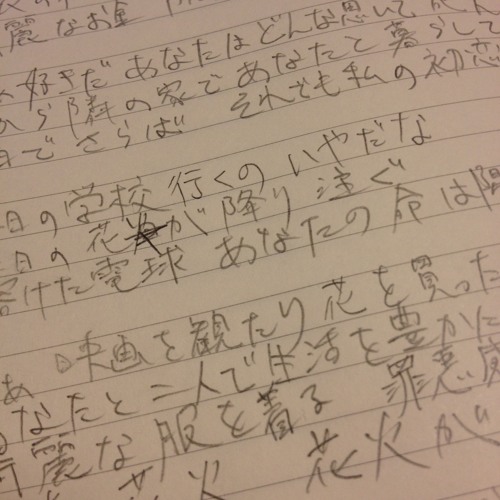 麗なお皿
好きだ あなたはどんな思いで
から隣の家であなたと暮らして
でさらば それでも私の初恋
日の学校行くのいやだな
日の花が降り注ぐ
けた電球 あなたの命は
映画を観たり花を買った
あなたと二人で生活を豊かに
麗な服を着る 罪悪感
花火 花火が